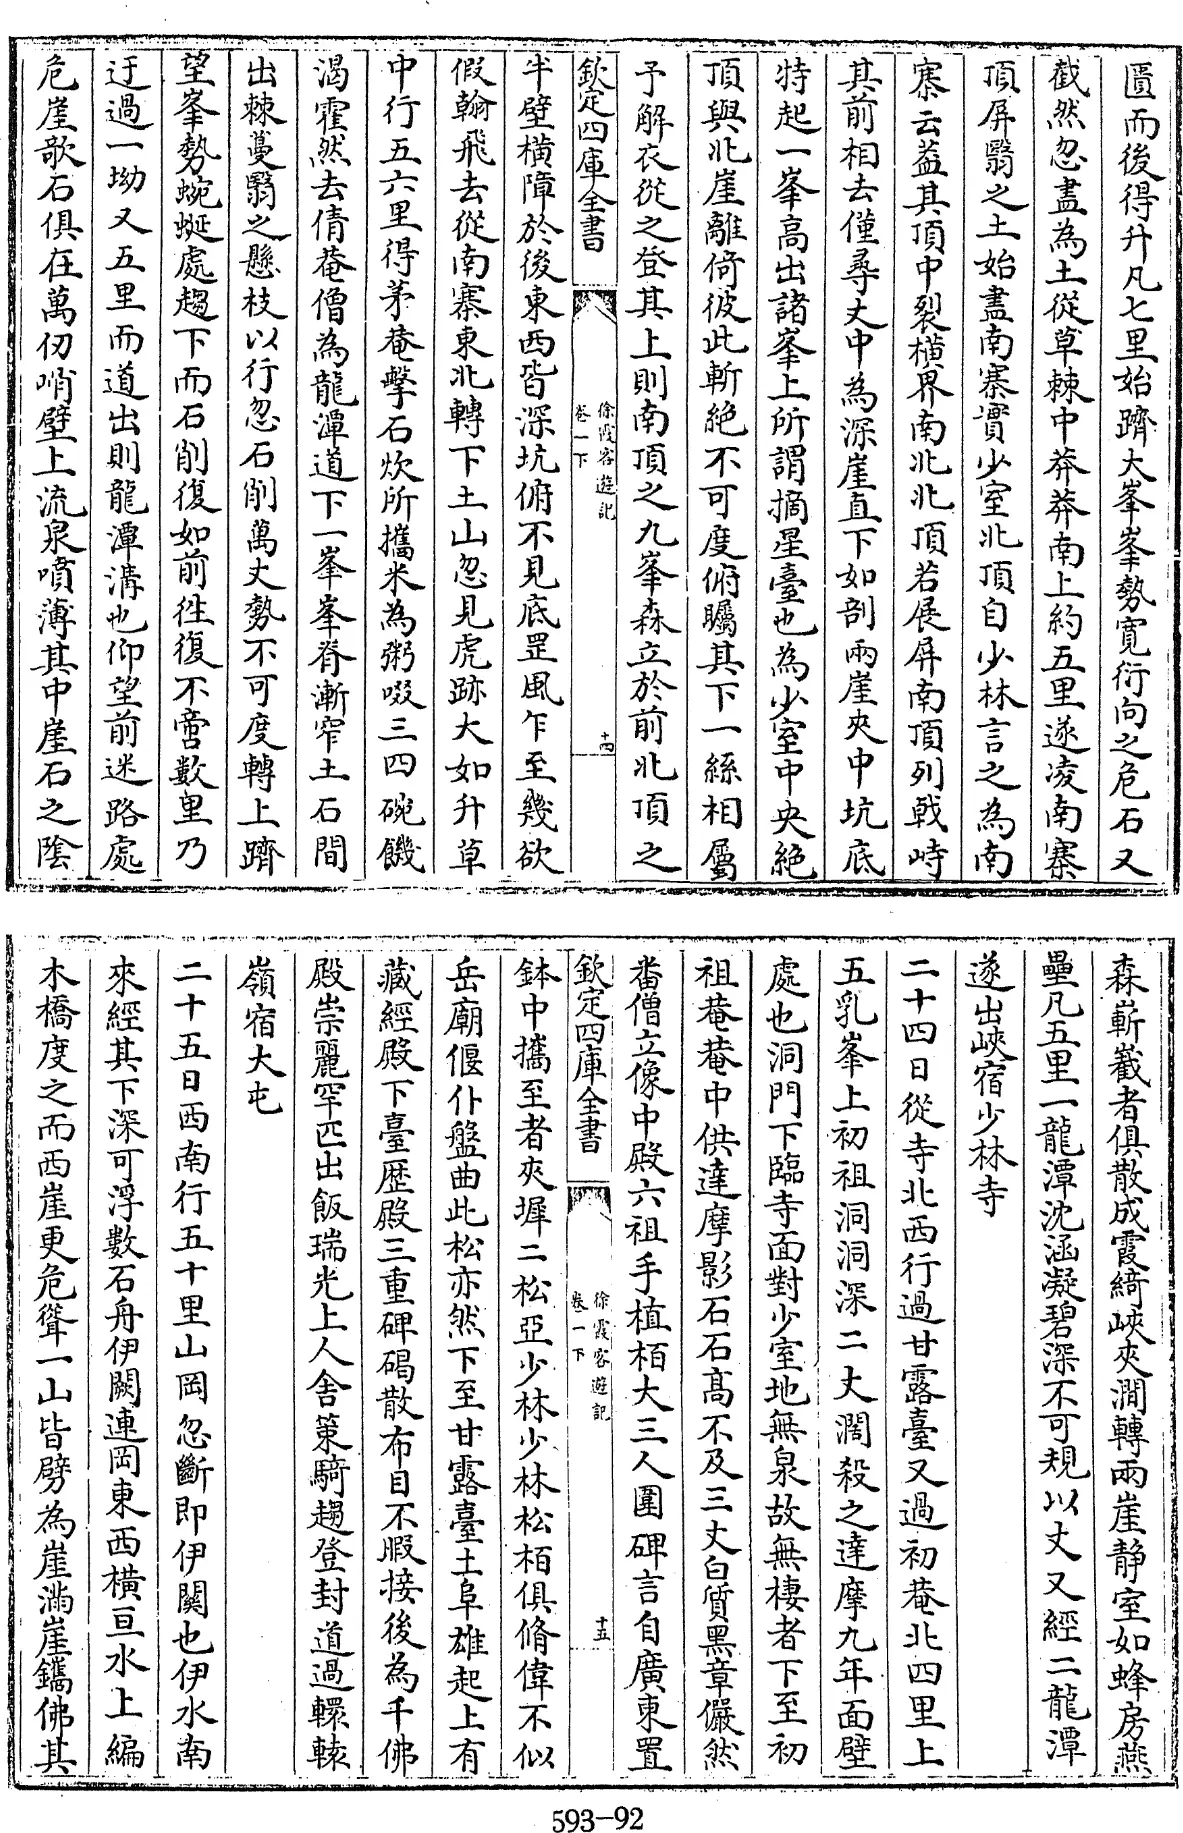 匱而後得升凡七里始躋大峯峯勢寛衍向之危石又
截然忽盡為土從草棘中莽莽南上約五里遂凌南寨
頂屏翳之土始盡南寨實少室北頂自少林言之為南
寨云葢其頂中裂横界南北北頂若展屏南頂列戟峙
其前相去僅尋丈中為深崖直下如剖兩崖夾中坑底
特起一峯高出諸峯上所謂摘星臺也為少室中央絶
頂與北崖離倚彼此斬絶不可度俯矚其下一絲相屬
予解衣從之登其上則南頂之九峯森立於前北頂之
欽定四庫全書
徐霞客遊記
卷一下
十四
半壁横障於後東西皆深坑俯不見底罡風乍至幾欲
假翰飛去從南寨東北轉下土山忽見虎跡大如升草
中行五六里得茅菴擊石炊所攜米為粥啜三四碗饑
渴霍然去倩菴僧為龍潭道下一峯峯脊漸窄土石間
出棘蔓翳之懸枝以行忽石削萬丈勢不可度轉上躋
望峯勢蜿蜒處趨下而石削復如前徃復不啻數里乃
迂過一坳又五里而道出則龍潭溝也仰望前迷路處
危崖欹石俱在萬仞峭壁上流泉噴薄其中崖石之陰
森嶄嶻者俱散成霞綺峽夾澗轉兩崖静室如蜂房燕
壘凡五里一龍潭沈涵凝碧深不可規以丈又經二龍潭
遂出峽宿少林寺
二十四日從寺北西行過甘露臺又過初菴北四里上
五乳峯上初祖洞洞深二丈濶殺之達摩九年面壁
處也洞門下臨寺面對少室地無泉故無棲者下至初
祖菴菴中供達摩影石石高不及三丈白質黑章儼然
番僧立像中殿六祖手植栢大三人圍碑言自廣東置
欽定四庫全書
徐霞客遊記
卷一下
十五
鉢中攜至者夾墀二松亞少林少林松栢俱脩偉不似
岳廟偃仆盤曲此松亦然下至甘露臺土阜雄起上有
藏經殿下臺歷殿三重碑碣散布目不暇接後為千佛
殿崇麗罕匹出飯瑞光上人舎策騎趨登封道過轘轅
嶺宿大屯
二十五日西南行五十里山岡忽斷即伊闕也伊水南
來經其下深可浮數石舟伊闕連岡東西横亘水上編
木橋度之而西崖更危聳一山皆劈為崖滿崖鐫佛其
593-92